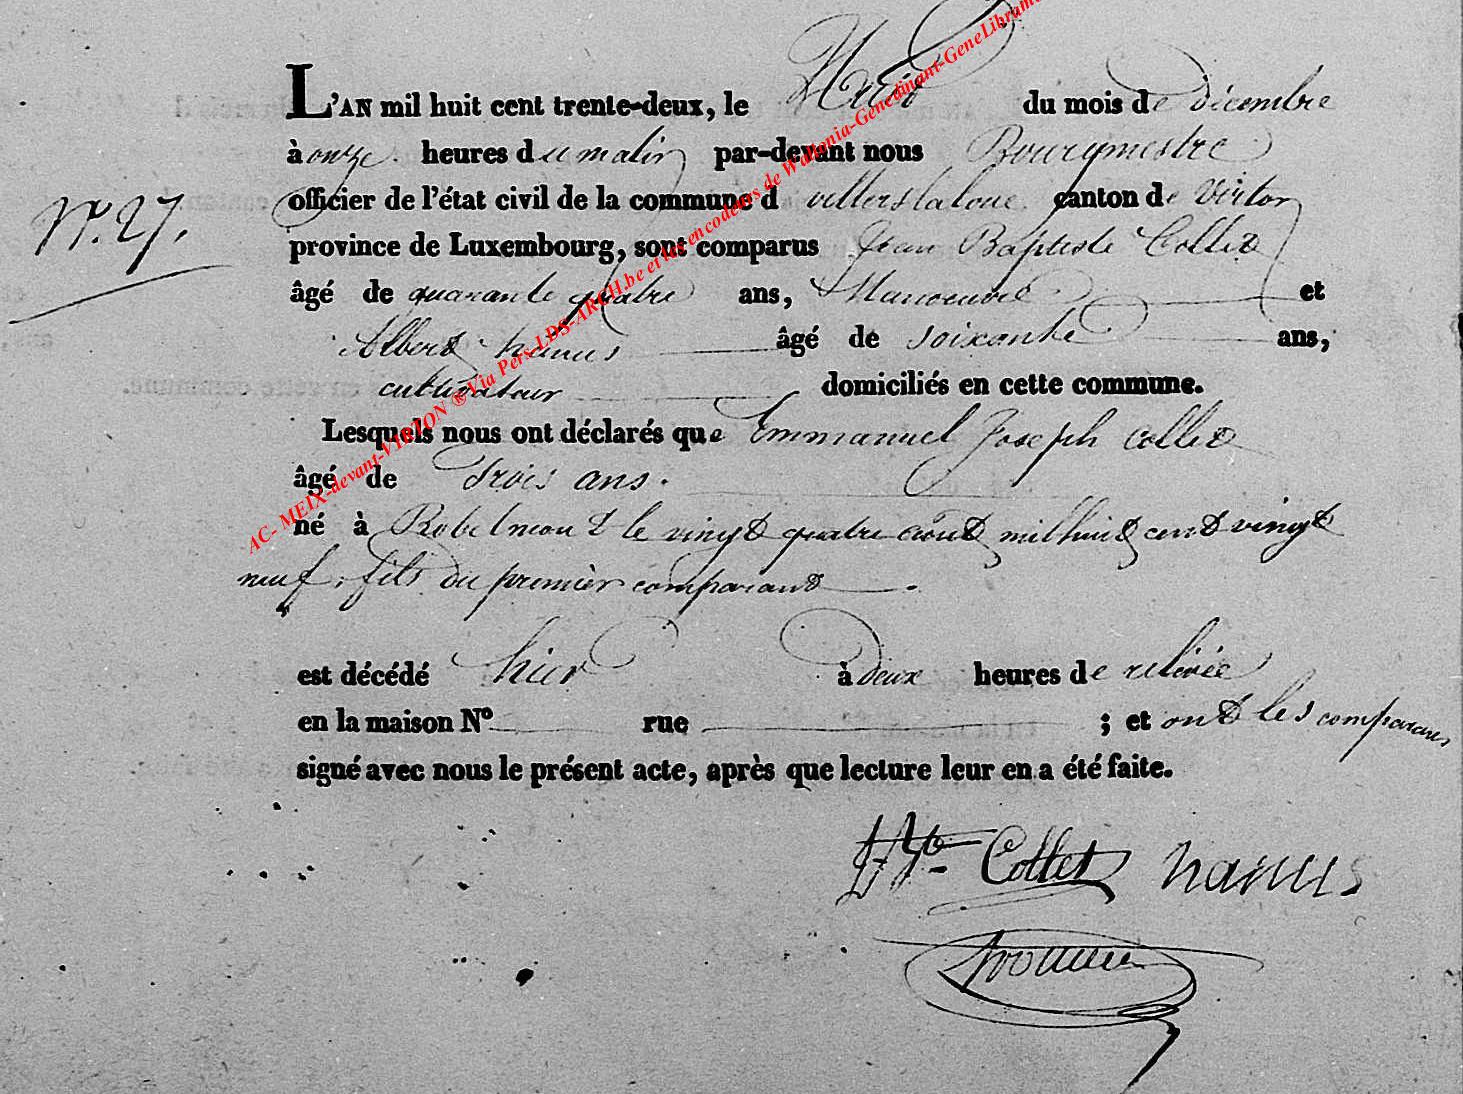 L'AN mil huit cent trente-deux, le Huit du mois de décembre
à onze heures du matin par-devant nous Bourgmestre
officier de l'état civil de la commune d villerslaloue canton de virton
province de Luxembourg, sont comparus Jean Baptiste Collet
N°. 27.
âgé de quarante quatre ans, Manoeuvre et
Albert hanus âgé de soixante ans,
cultivateur domiciliés en cette commune.
Lesquels nous ont déclarés que Emmanuel Joseph collet
âgé de trois ans.
né à Robelmont le vingt quatre août mil huit cent vingt
neuf, fils du premier comparant.
est décédé hier à deux heures de relevée
en la maison N° rue ; et ont les comparans
signé avec nous le présent acte, après que lecture leur en a été faite.
Collet hanus
AC- MEIX-devant-VIRTON ® Via Pers-LDS-ARCH.be et les encodeurs de Wallonia-Genedinant-GeneLibram